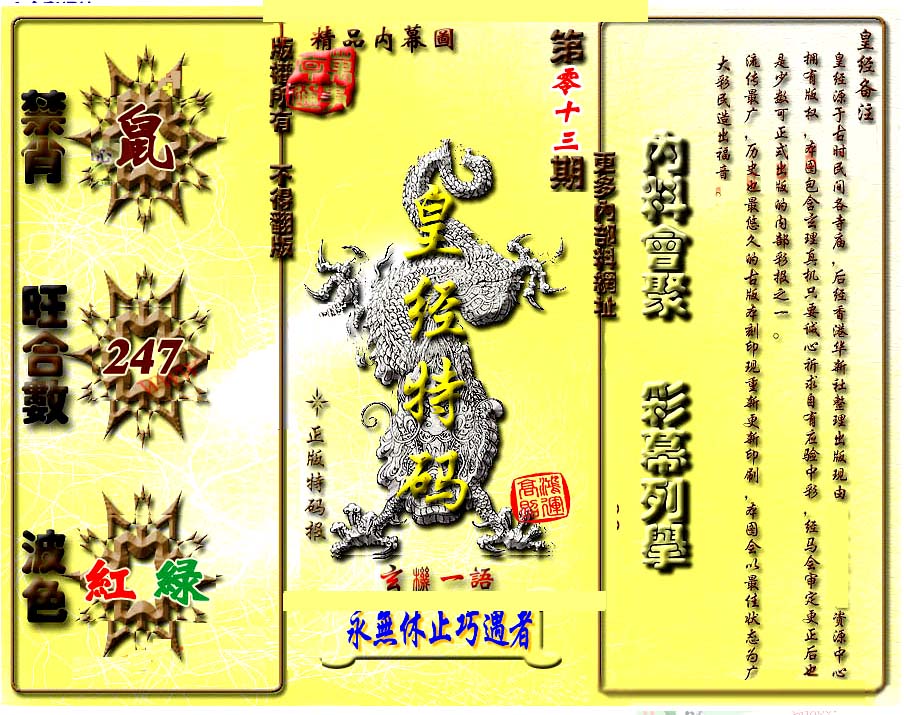 精品内幕圖
版權所有 不得翻版
第零十三期
更多内部料網址
禁肖
鼠
旺合數
247
波色
紅 綠
皇经特码
正版特码报
鴻運高照
玄機一語
永無休止巧遇者
内料會聚 彩幕列舉
皇经备注
皇经源于古时民间各寺庙，后经香港华新社整理出版现由 资源中心
拥有版权，本图包含玄理真机只要诚心祈求自有应验中彩，经马会审定更正后也
是少数可正式出版的内部彩报之一。
流传最广，历史也最悠久的古版本刻印现重新更新印刷，本图会以最佳状态为广
大彩民造出福音。